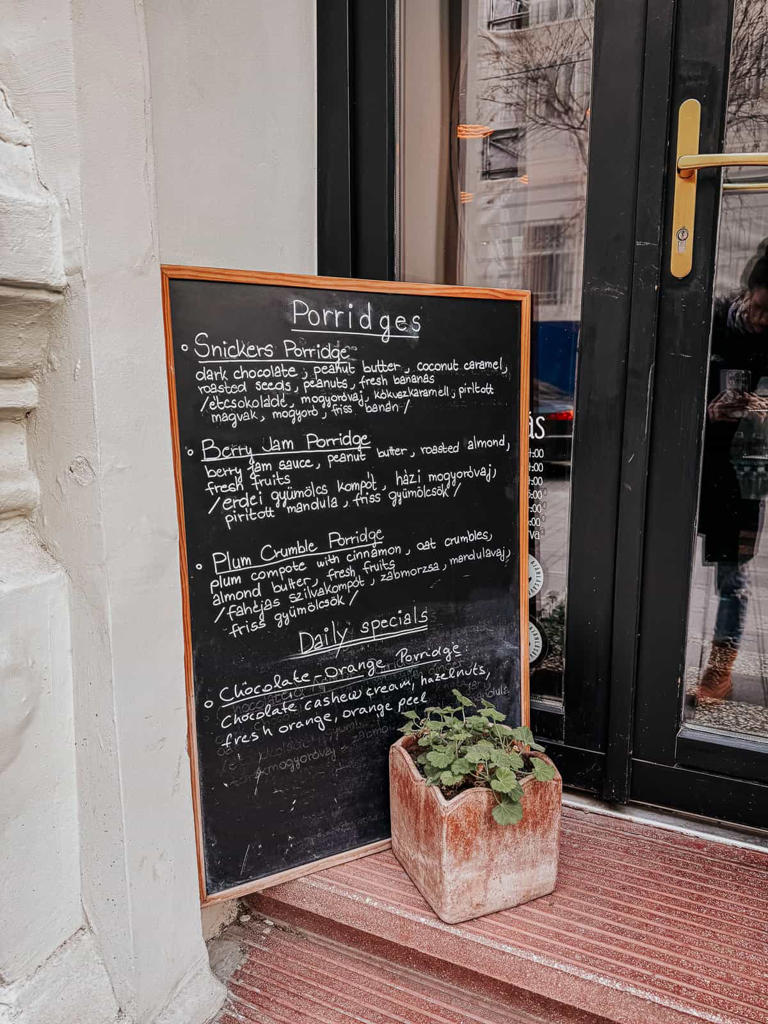 Porridges
Snickers Porridge
dark chocolate, peanut butter, coconut caramel,
roasted seeds, peanuts, fresh bananas
/étcsokoládé, mogyoróvaj, kókuszkaramell, pirított
magvak, mogyoró, friss banán/
Berry Jam Porridge
berry jam sauce, peanut butter, roasted almond,
fresh fruits
/erdei gyümölcs kompót, házi mogyoróvaj,
pirított mandula, friss gyümölcsök/
Plum Crumble Porridge
plum compote with cinnamon, oat crumbles,
almond butter, fresh fruits
/fahéjas szilvakompót, zabmorzsa, mandulavaj,
friss gyümölcsök/
Daily specials
Chocolate-Orange Porridge:
Chocolate cashew cream, hazelnuts,
fresh orange, orange peel